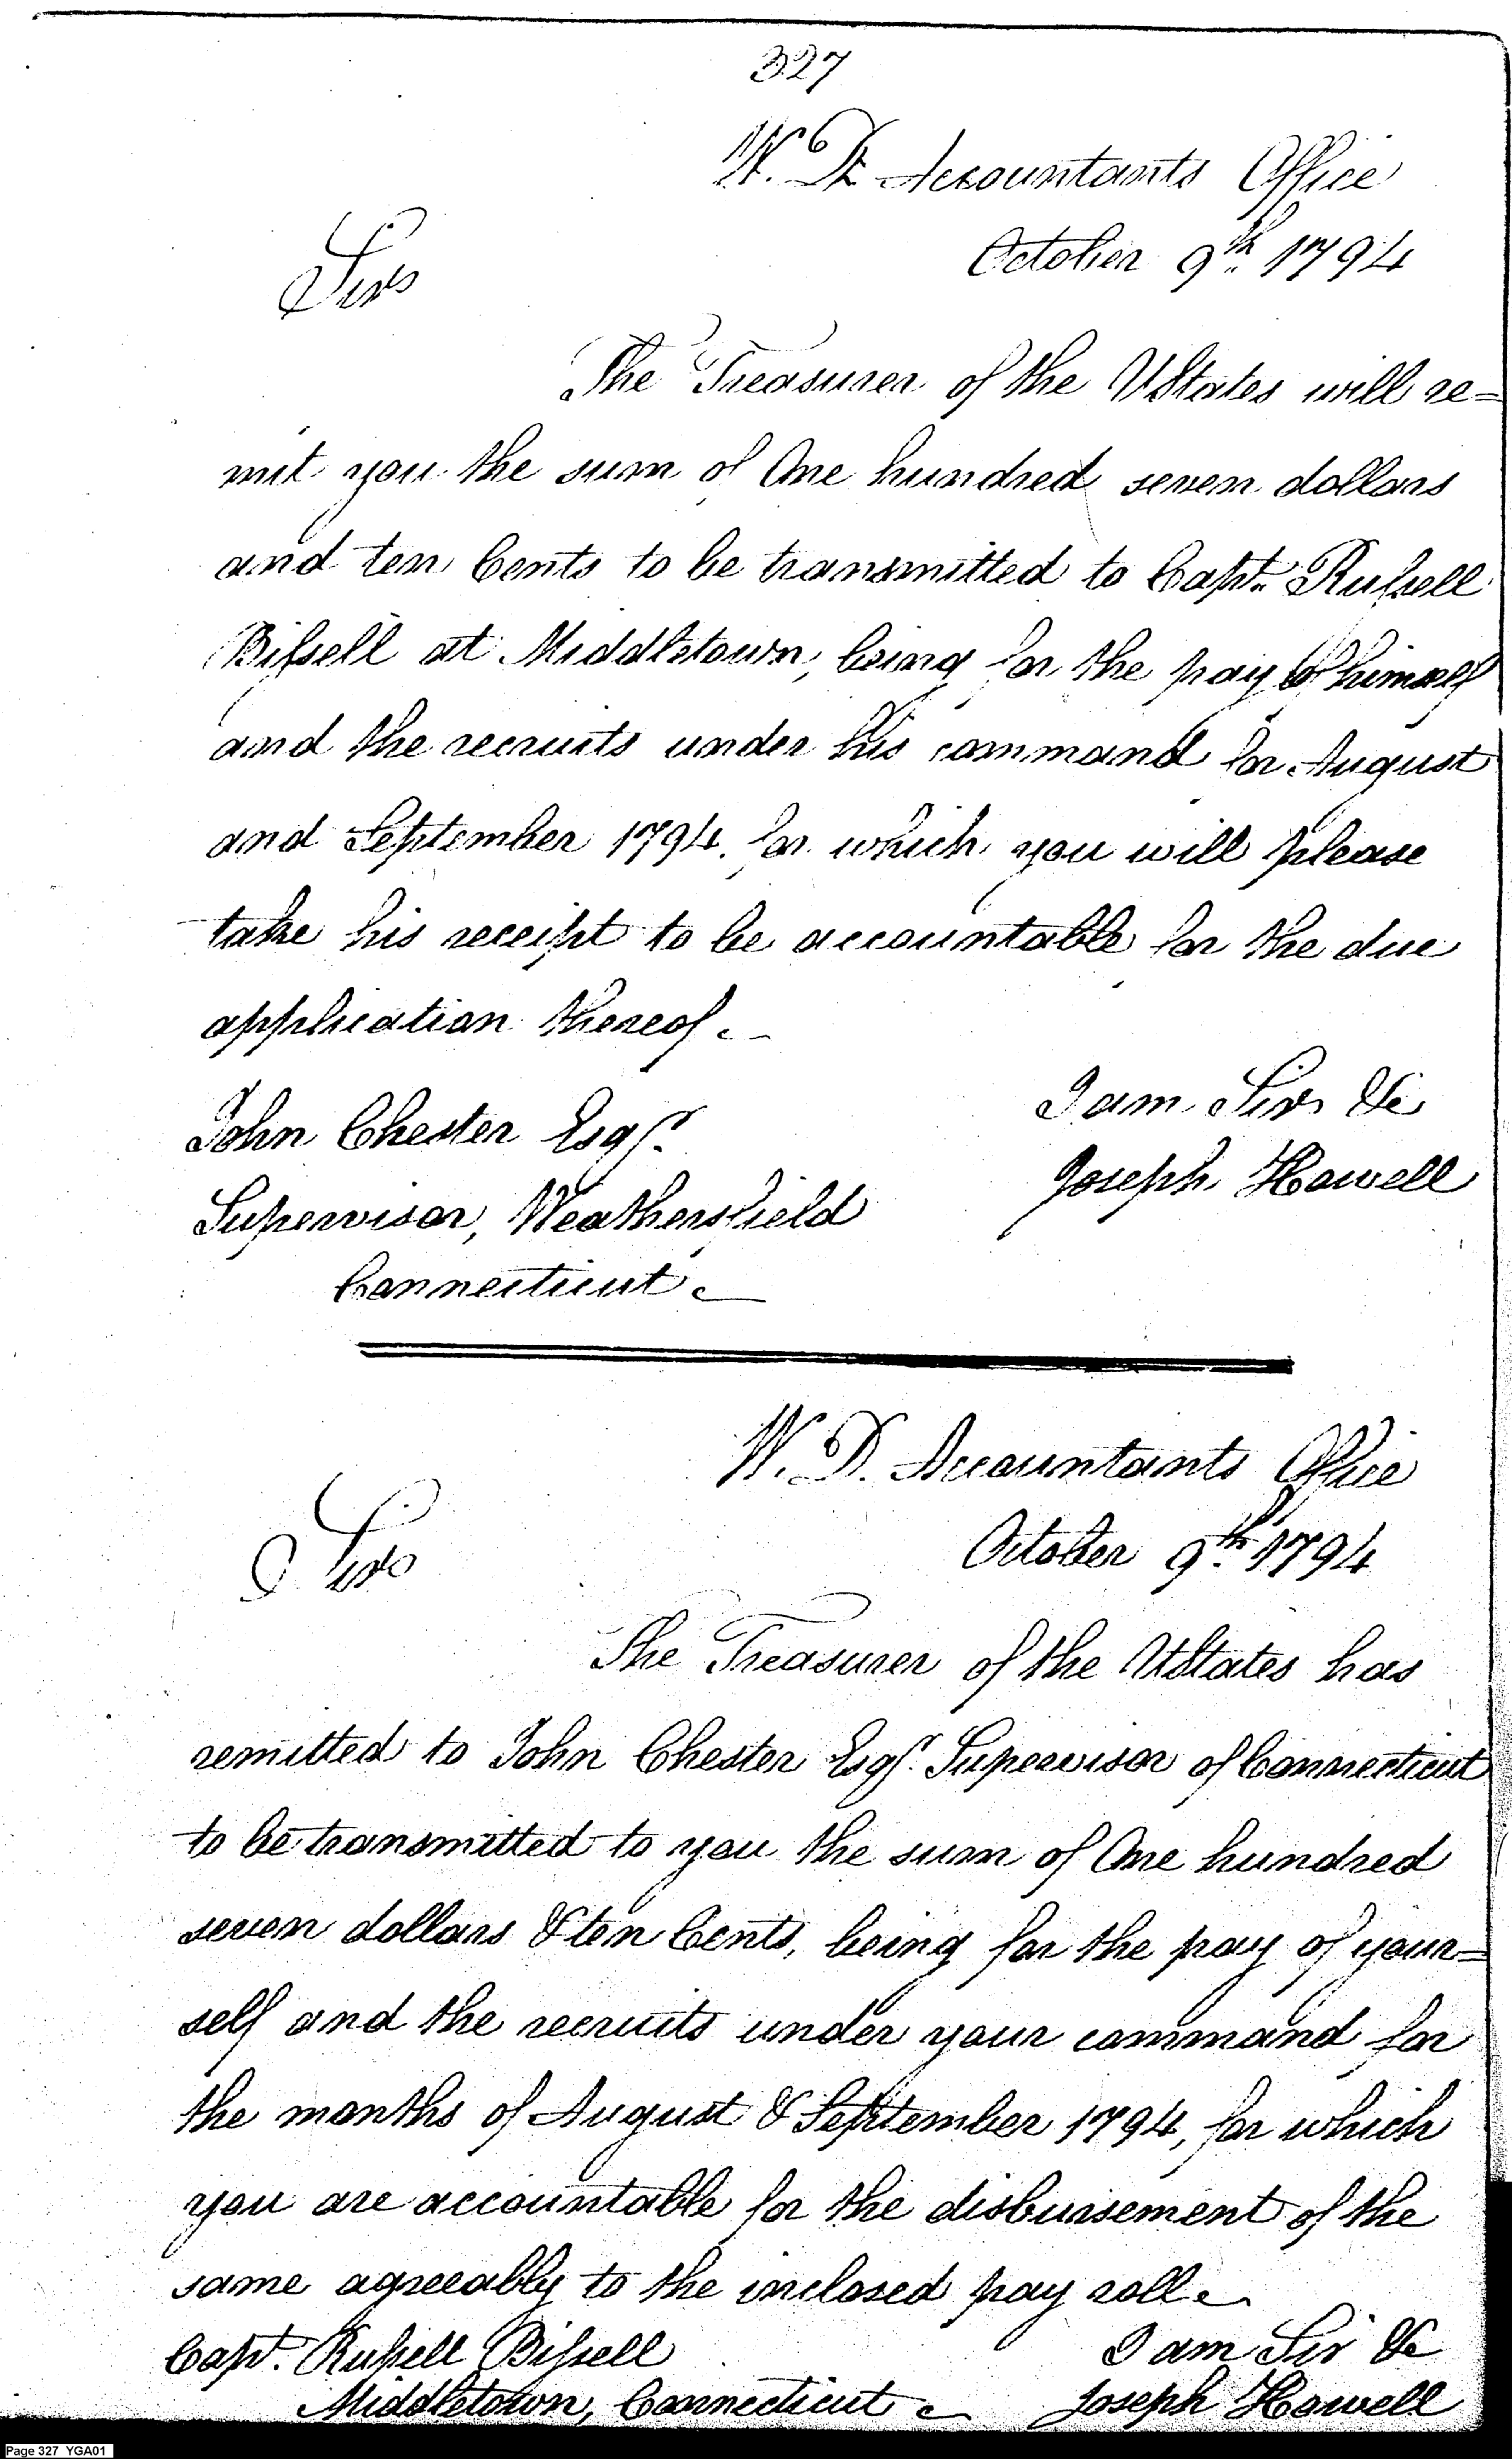 327
W. D. Accountants Office
October 9th. 1794
Sir
The Treasurer of the UStates will re=
mit you the sum of One hundred seven dollars
and ten Cents to be transmitted to Capt. Russell
Bissell at Middletown, being for the pay of himself
and the recruits under his command for August
and September 1794. for which you will please
take his receipt to be accountable for the due
application thereof.
I am Sir &c
John Chester Esqr.
Joseph Howell
Supervisor, Weathersfield
Connecticut.
W. D. Accountants Office
October 9th. 1794
Sir
The Treasurer of the UStates has
remitted to John Chester Esqr. Supervisor of Connecticut
to be transmitted to you the sum of One hundred
seven dollars & ten Cents, being for the pay of your=
self and the recruits under your command for
the months of August & September 1794, for which
you are accountable for the disbursement of the
same agreeably to the inclosed pay roll.
Capt. Russell Bissell
I am Sir &c
Middletown, Connecticut.
Joseph Howell
Page 327 YGA01